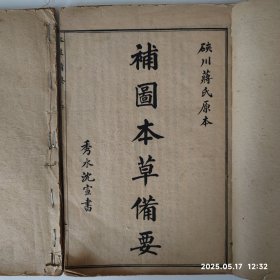 硤川蔣氏原本
補圖本草備要
秀水沈宣書
2025.05.17 12:32